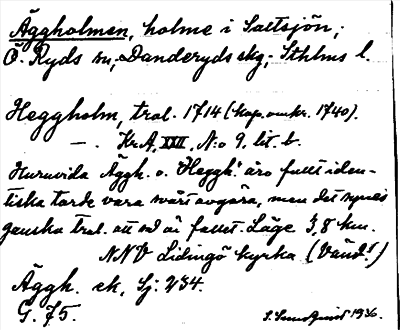 Äggholmen, holme i Saltsjön,
Ö. Ryds sn, Danderyds skg, Sthlms l.
Heggholm, trol. 1714 (kop. omkr. 1740).
— . Kr. A, XXII, N:o 9, lit. b.
Huruvida Äggh. o. "Heggh." äro fullt iden-
tiska torde vara svårt avgöra, men det synes
ganska trol. att så är fallet. Läge 3,8 km.
NNV Lidingö kyrka (Vänd!)
Äggh. ek, Sj: 234.
G. 75.
1936.